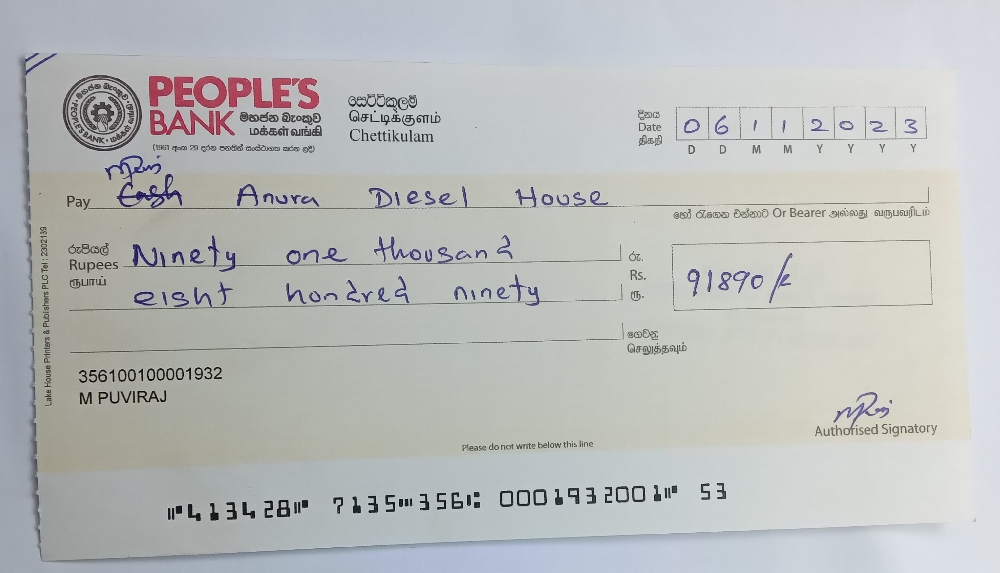 PEOPLE'S
BANK මහජන බැංකුව
மக்கள் வங்கி
(1961 අංක 29 දරන පනතින් සංස්ථාගත කරන ලදී)
සෙට්ටිකුලම්
செட்டிக்குளம்
Chettikulam
දිනය
Date
திகதி
0 6 1 1 2 0 2 3
D D M M Y Y Y Y
Pay Cash Anura Diesel House
හෝ රැගෙන එන්නාට Or Bearer அல்லது வருபவரிடம்
රුපියල්
Rupees
ரூபாய்
Ninety one thousand
eight hondred ninety
රු.
Rs.
ரூ.
91890/-
ගෙවනු
செலுத்தவும்
356100100001932
M PUVIRAJ
Authorised Signatory
Please do not write below this line
⑈413428⑈ 7135⑉356⑆ 0001932001⑈ 53
Lake House Printers & Publishers PLC Tel : 2302139